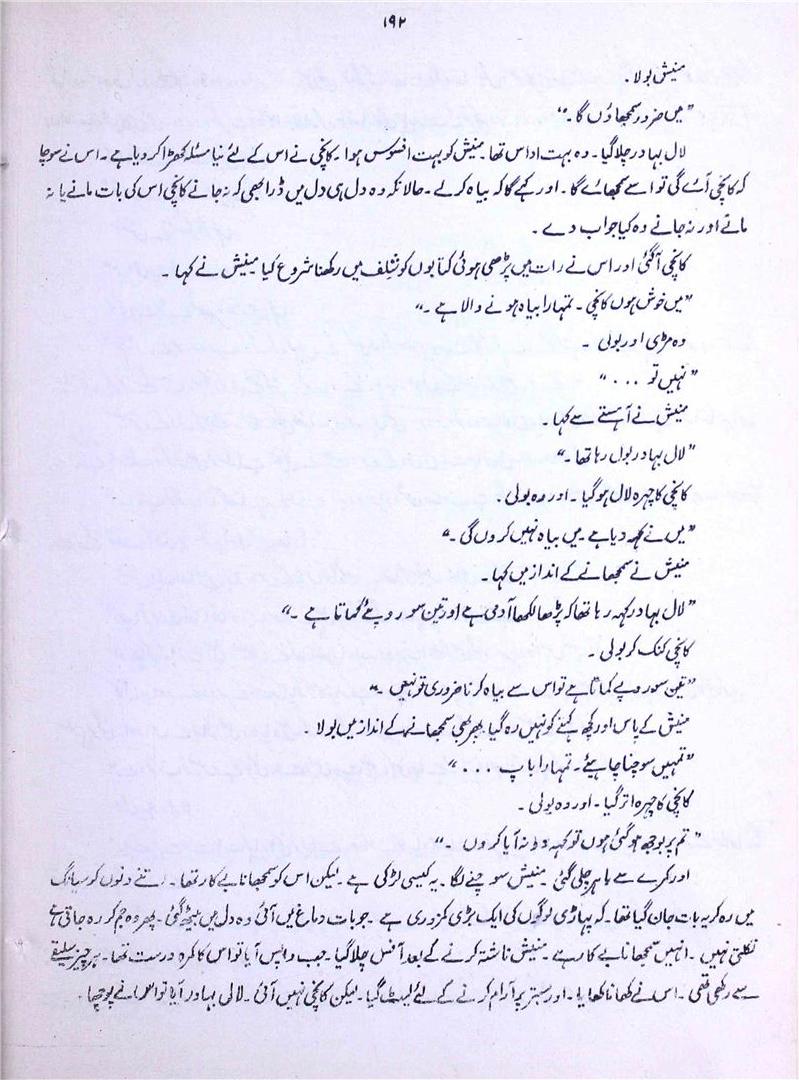 ۱۹۲
منیش بولا۔
”میں ضرور سمجھاؤں گا۔“
لال بہادر چلا گیا۔ وہ بہت اداس تھا۔ منیش کو بہت افسوس ہوا۔ کانچی نے اس کے لئے نیا مسئلہ کھڑا کر دیا ہے۔ اس نے سوچا
کہ کانچی آئے گی تو اسے سمجھائے گا۔ اور کہے گا کہ بیاہ کر لے۔ حالانکہ وہ دل ہی دل میں ڈرا بھی کہ نہ جانے کانچی اس کی بات مانے یا نہ
مانے اور نہ جانے وہ کیا جواب دے۔
کانچی آ گئی اور اس نے رات میں پڑھی ہوئی کتابوں کو شلف میں رکھنا شروع کیا منیش نے کہا۔
”میں خوش ہوں کانچی۔ تمہارا بیاہ ہونے والا ہے۔“
وہ مڑی اور بولی۔
”نہیں تو ...“
منیش نے آہستے سے کہا۔
”لال بہادر بول رہا تھا۔“
کانچی کا چہرہ لال ہو گیا۔ اور وہ بولی
”میں نے کہہ دیا ہے میں بیاہ نہیں کروں گی۔“
منیش نے سمجھانے کے انداز میں کہا۔
”لال بہادر کہہ رہا تھا کہ پڑھا لکھا آدمی ہے اور تین سو روپے کماتا ہے۔“
کانچی کنک کر بولی۔
”تین سو روپے کماتا ہے تو اس سے بیاہ کرنا ضروری تو نہیں۔“
منیش کے پاس اور کچھ کہنے کو نہیں رہ گیا پھر بھی سمجھانے کے انداز میں بولا۔
”تمہیں سوچنا چاہیئے۔ تمہارا باپ ...“
کانچی کا چہرہ اتر گیا۔ اور وہ بولی۔
”تم پر بوجھ ہو گئی ہوں تو کہہ دو نہ آیا کروں۔“
اور کمرے سے باہر چلی گئی۔ منیش سوچنے لگا۔ یہ کیسی لڑکی ہے۔ لیکن اس کو سمجھانا بے کار تھا۔ اتنے دنوں کو سیانگ
میں رہ کر یہ بات جان گیا تھا۔ کہ پہاڑی لوگوں کی ایک بڑی کمزوری ہے۔ جو بات دماغ میں آئی وہ دل میں بیٹھ گئی۔ پھر وہ جم کر رہ جاتی ہے
نکلتی نہیں۔ انہیں سمجھانا بے کار ہے۔ منیش ناشتہ کرنے کے بعد آفس چلا گیا۔ جب واپس آیا تو اس کا کمرہ درست تھا۔ ہر چیز سلیقے
سے رکھی تھی۔ اس نے کھانا کھایا۔ اور بستر پر آرام کرنے کے لئے لیٹ گیا۔ لیکن کانچی نہیں آئی۔ لال بہادر آیا تو اس نے پوچھا۔